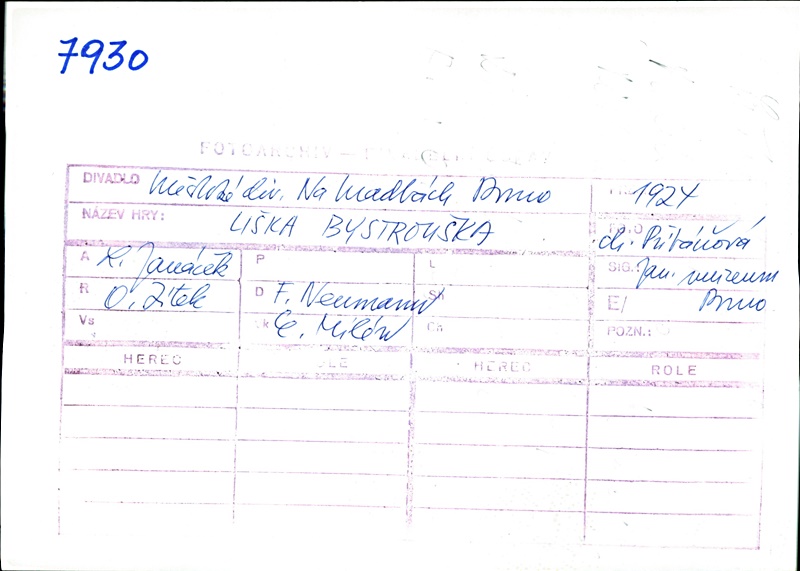 7930
FOTOARCHIV –
DIVADLO Městské div. Na hradbách Brno 1924
NÁZEV HRY: LIŠKA BYSTROUŠKA FOTO dr. Přibáňová
A L. Janáček P L SIG.: Jan. muzeum
R O. Zítek D F. Neumann Sh E/ Brno
Vs k E. Milén Ch POZN.:
HEREC ROLE HEREC ROLE